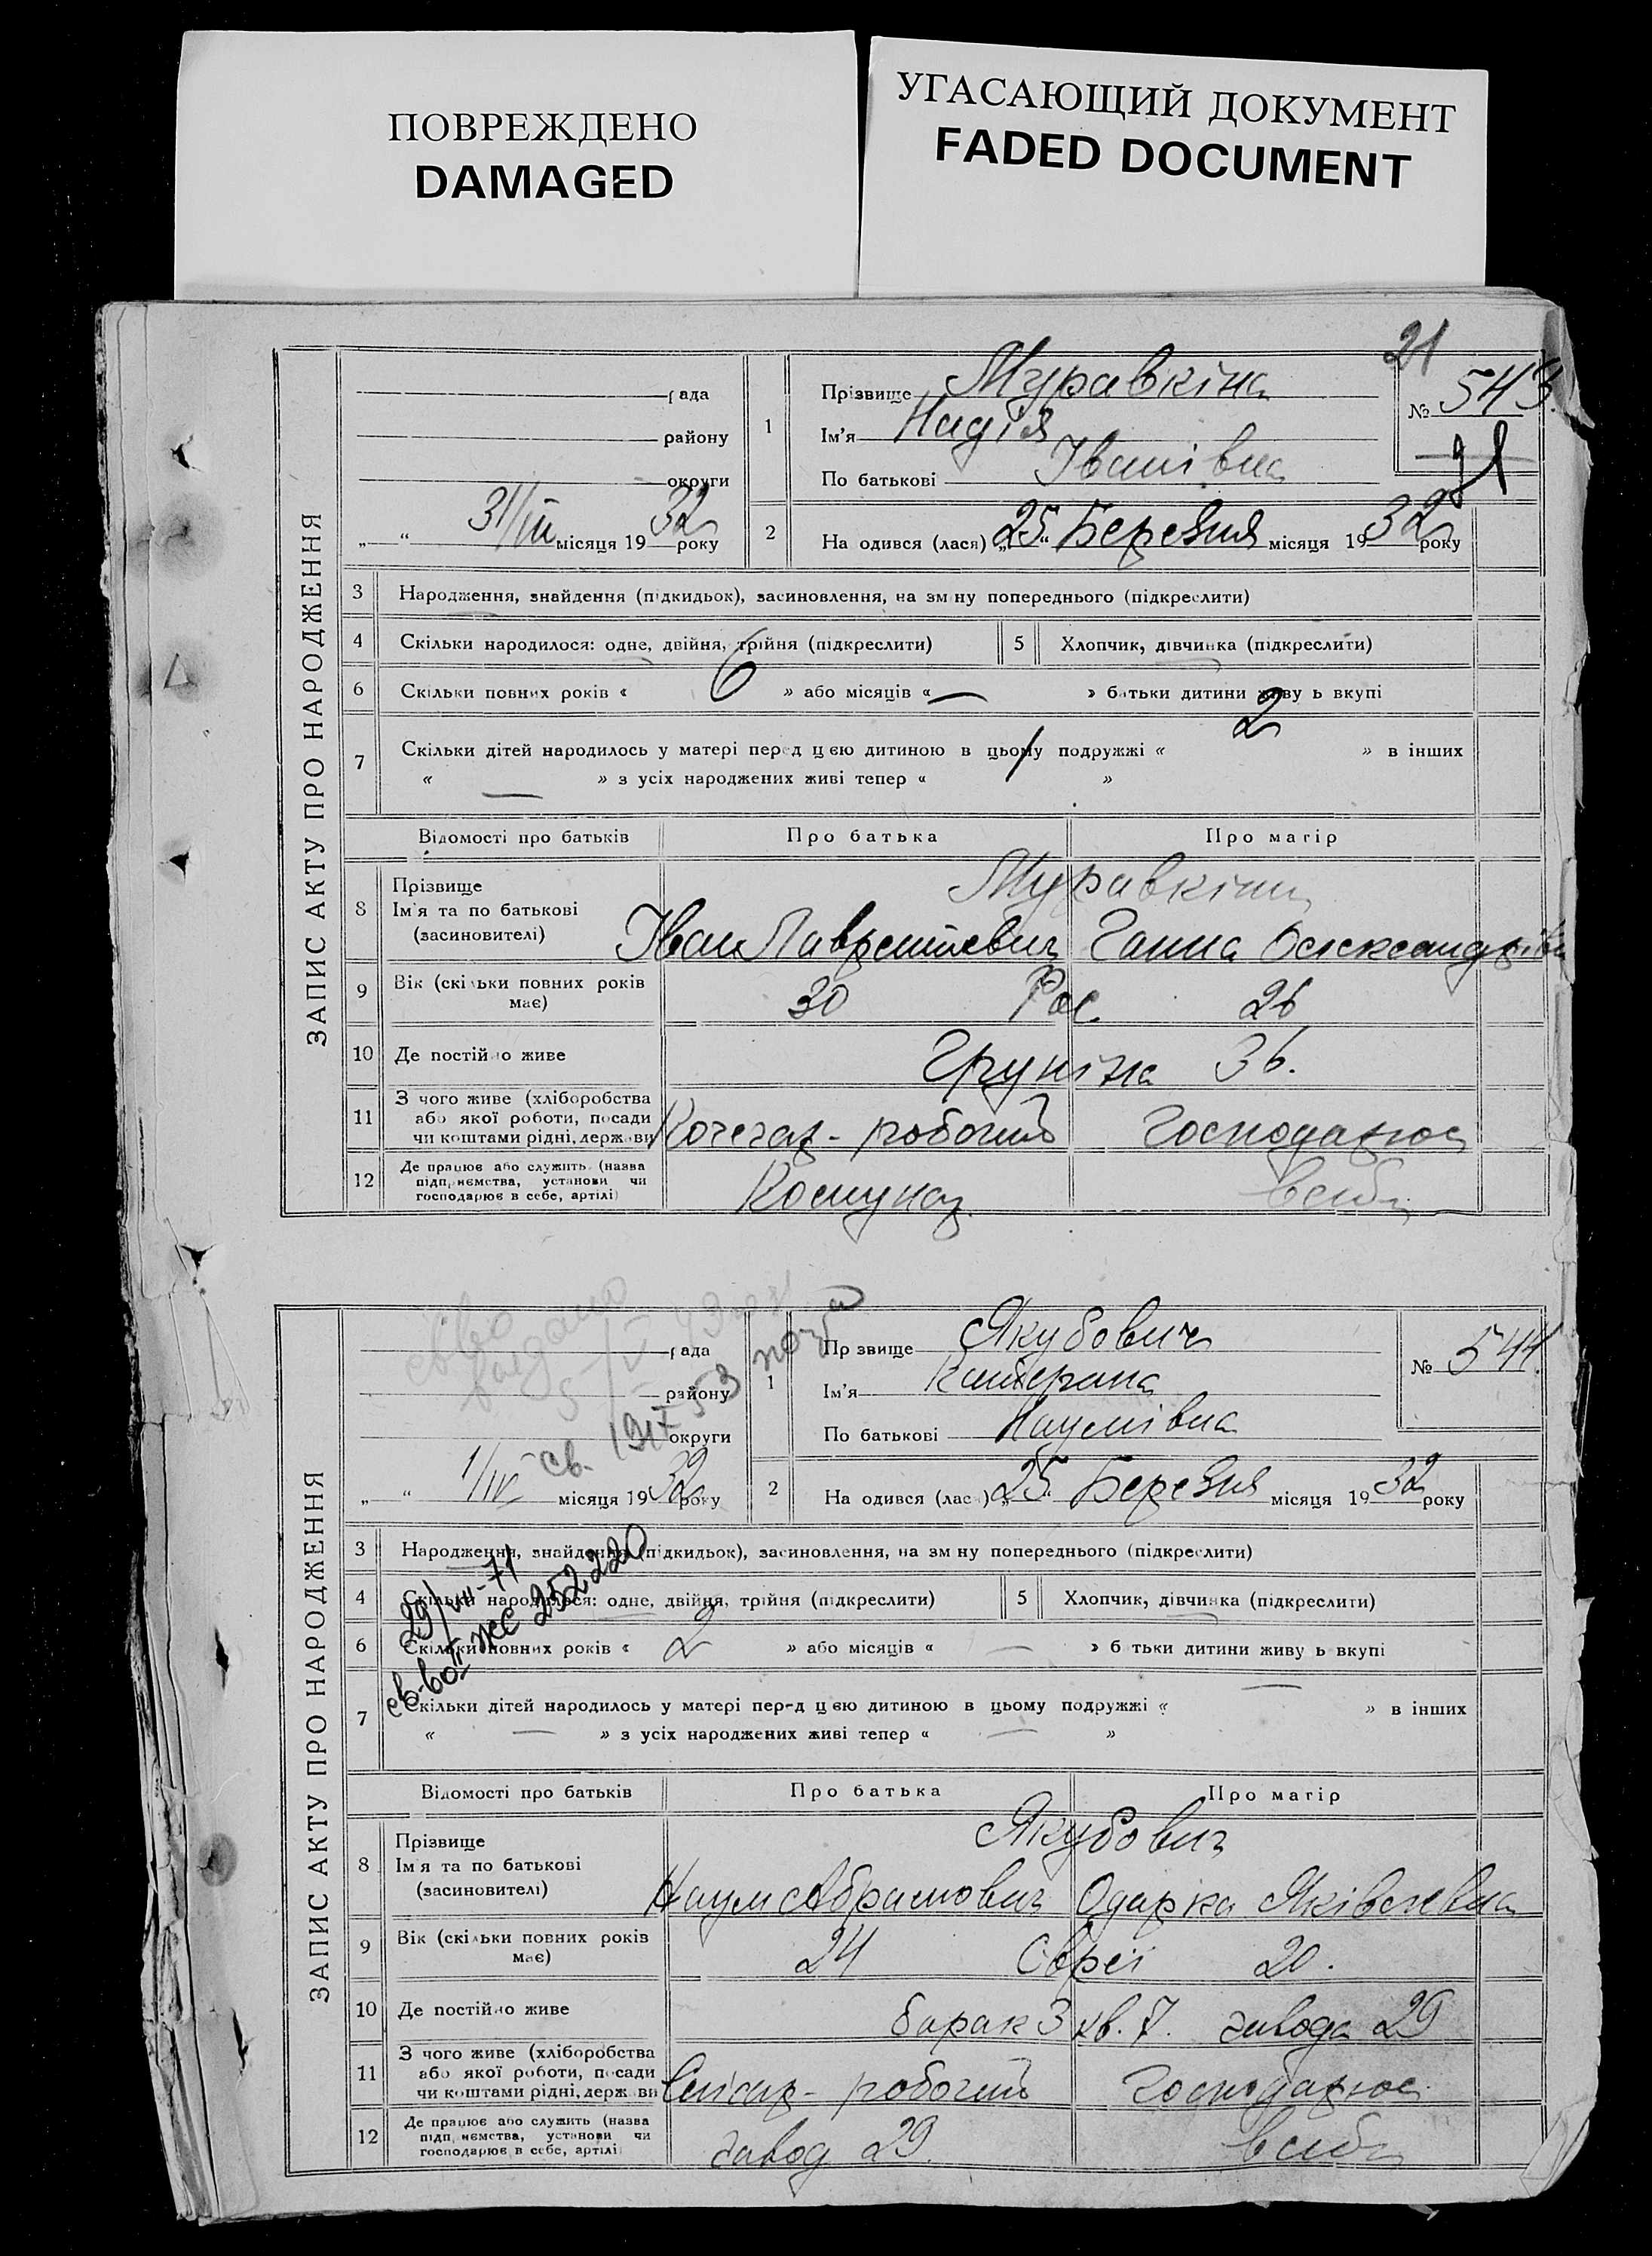 ПОВРЕЖДЕНО
DAMAGED
УГАСАЮЩИЙ ДОКУМЕНТ
FADED DOCUMENT
ЗАПИС АКТУ ПРО НАРОДЖЕННЯ
21
рада
району
округи
„ “ 31/III місяця 1932 року
1
Прізвище Муравкіна
Ім'я Надія
По батькові Іванівна
№ 543.
2
На одився (лася) „25“ Березня місяця 1932 року
3 Народження, знайдення (підкидьок), засиновлення, на зм ну попереднього (підкреслити)
4 Скільки народилося: одне, двійня, трійня (підкреслити) 5 Хлопчик, дівчинка (підкреслити)
6 Скільки повних років « 6 » або місяців « — » батьки дитини живу ь вкупі
7 Скільки дітей народилось у матері перед цією дитиною в цьому подружжі « 2 » в інших
« — » з усіх народжених живі тепер « 1 »
Відомості про батьків Про батька Про матір
8 Прізвище
Ім'я та по батькові
(засиновителі)
Муравкіни
Іван Лаврентієвич Ганна Олександрівн
9 Вік (скільки повних років має) 30 Рос. 26
10 Де постійно живе Груніна 36.
11 З чого живе (хліборобства
або якої роботи, посади
чи коштами рідні, держави
Кочегар - робочий Господарює
12 Де працює або служить (назва
підприємства, установи чи
господарює в себе, артілі)
Комунаг.
ЗАПИС АКТУ ПРО НАРОДЖЕННЯ
рада
району
округи
„ “ 1/IV місяця 1932 року
1
Пр звище Якубович
Ім'я Катерана
По батькові Наумівна
№ 544.
2
На одився (лас ) „25“ Березня місяця 1932 року
3 Народження, знайдення (підкидьок), засиновлення, на зм ну попереднього (підкреслити)
29/VII-71
4 Скільки народилося: одне, двійня, трійня (підкреслити) 5 Хлопчик, дівчинка (підкреслити)
св-во II ЖС 252220
6 Скільки повних років « 2 » або місяців « — » б тьки дитини живу ь вкупі
7 Скільки дітей народилось у матері перед цією дитиною в цьому подружжі « — » в інших
« — » з усіх народжених живі тепер « — »
Відомості про батьків Про батька Про матір
8 Прізвище
Ім'я та по батькові
(засиновителі)
Якубович
Наум Абрамович Одарка Яківлевна
9 Вік (скільки повних років має) 24 Євреї 20.
10 Де постійно живе барак 3 кв. 7. завода 29
11 З чого живе (хліборобства
або якої роботи, посади
чи коштами рідні, держави
Слісар - робочий Господарює
12 Де працює або служить (назва
підприємства, установи чи
господарює в себе, артілі
завод 29.